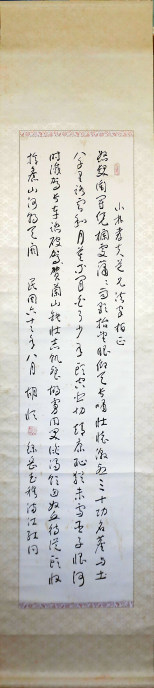 怒髮衝冠憑欄處瀟瀟雨歇抬望眼仰天長嘯壯懷激烈三十功名塵與土
八千里路雲和月莫等閒白了少年頭空悲切靖康恥猶未雪臣子恨何
時滅駕長車踏破賀蘭山缺壯志飢餐胡虜肉笑談渴飲匈奴血待從頭收
拾舊山河朝天闕 民國六十 年八月 胡 錄岳武穆滿江紅詞